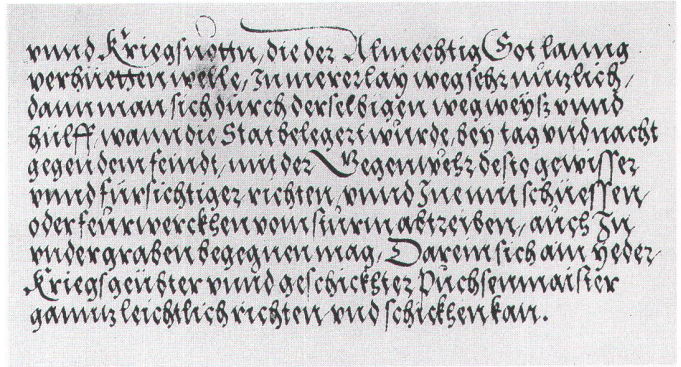 vnnd Kriegsnöttn, die der Almechtig Got lanng
verhüetten welle, In mererlay weg sehr nützlich,
dann man sich durch derselbigen wegweysz vnnd
hülff, wann die Stat belegert wurde, bey tag vnd nacht
gegen dem feindt, mit der Gegenwehr deste gewisser
vnnd fürsichtiger richten, vnnd Ine mit schiessen,
oder feürwerckhen vom sturm abtreiben, auch In
vndergraben begegnen mag, Darein sich ain yeder,
Kriegsgeübter vnnd geschickhter Puchsenmaister
gannz leichtlich richten, vnd schickhen kan.